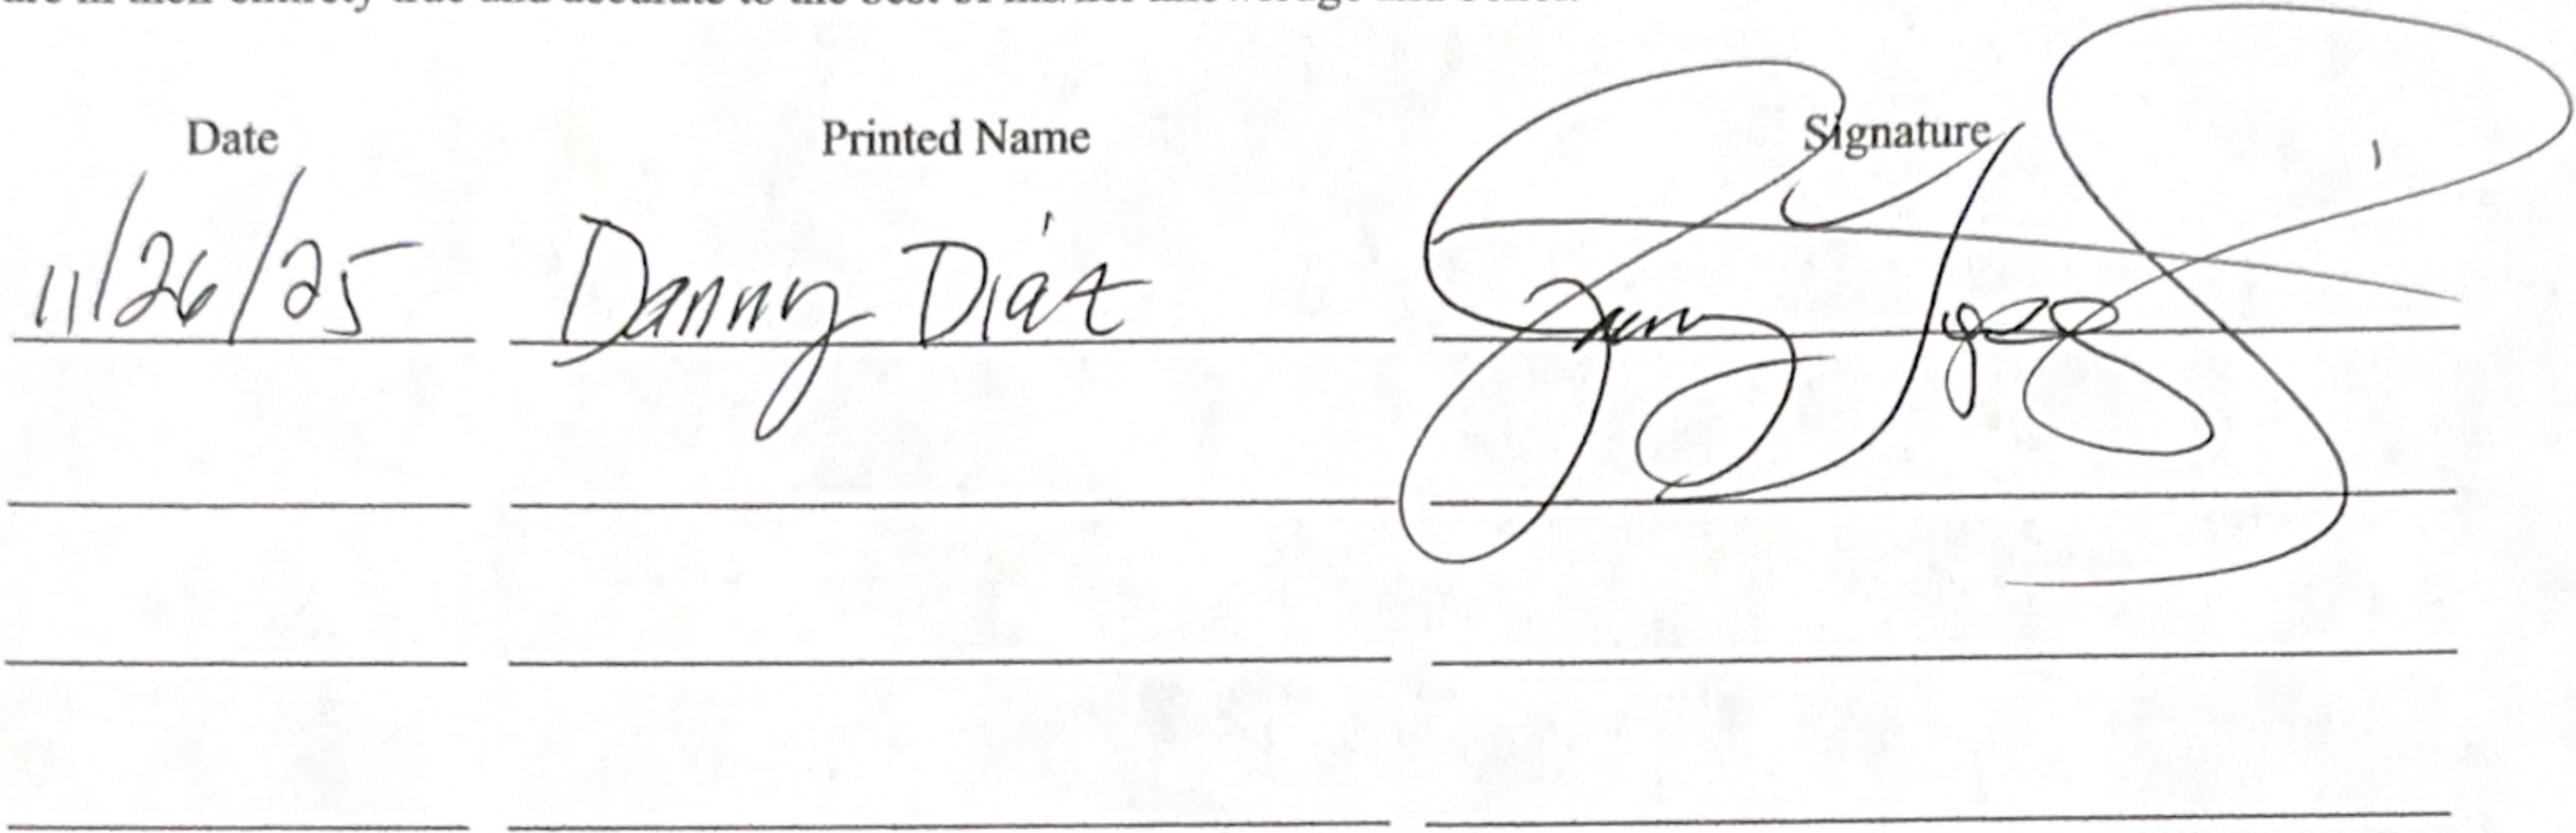 Date Printed Name Signature
11/26/25 Danny Díaz